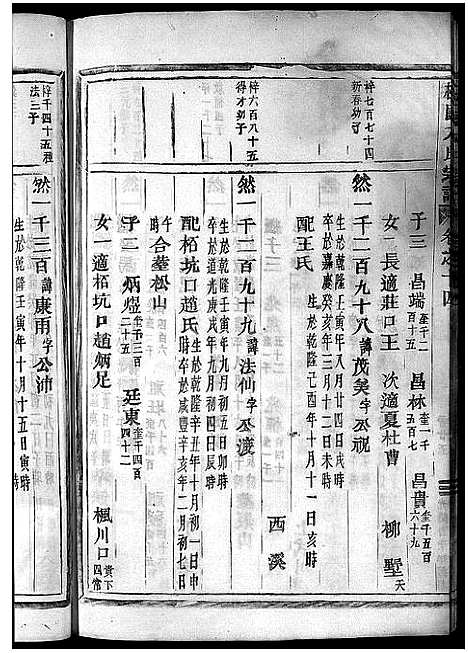 梓七百七十四
新春幼子
子三 昌端 奎千二百十五 昌林 奎一千五百七 昌貴 奎千五百六十九
女一 長適莊口王 次適夏杜曹 柳墅 天
然一千二百九十八 諱茂 字公祝
生於乾隆壬寅年八月廿四日戌時
卒於嘉慶癸亥年三月十二日未時
配王氏 生於乾隆己酉年十月十一日亥時
西溪
梓六百八十五
得才幼子
然一千二百九十九 諱法仙 字公渡
生於乾隆壬寅年九月初五日卯時
卒於道光庚戌年九月初四日辰時
配栢坑口趙氏 生於乾隆辛丑年十月初一日申時 卒於咸豐辛亥年二月初七日
午時 合葬松山
子二 炳煜 奎千三百二十五 廷東 奎千四百四十二
女一 適栢坑口趙炳足 楓川口 貴下四常
梓千四十五
法三子
然一千三百 諱康雨 字公沛
生於乾隆壬寅年十月十五日寅時